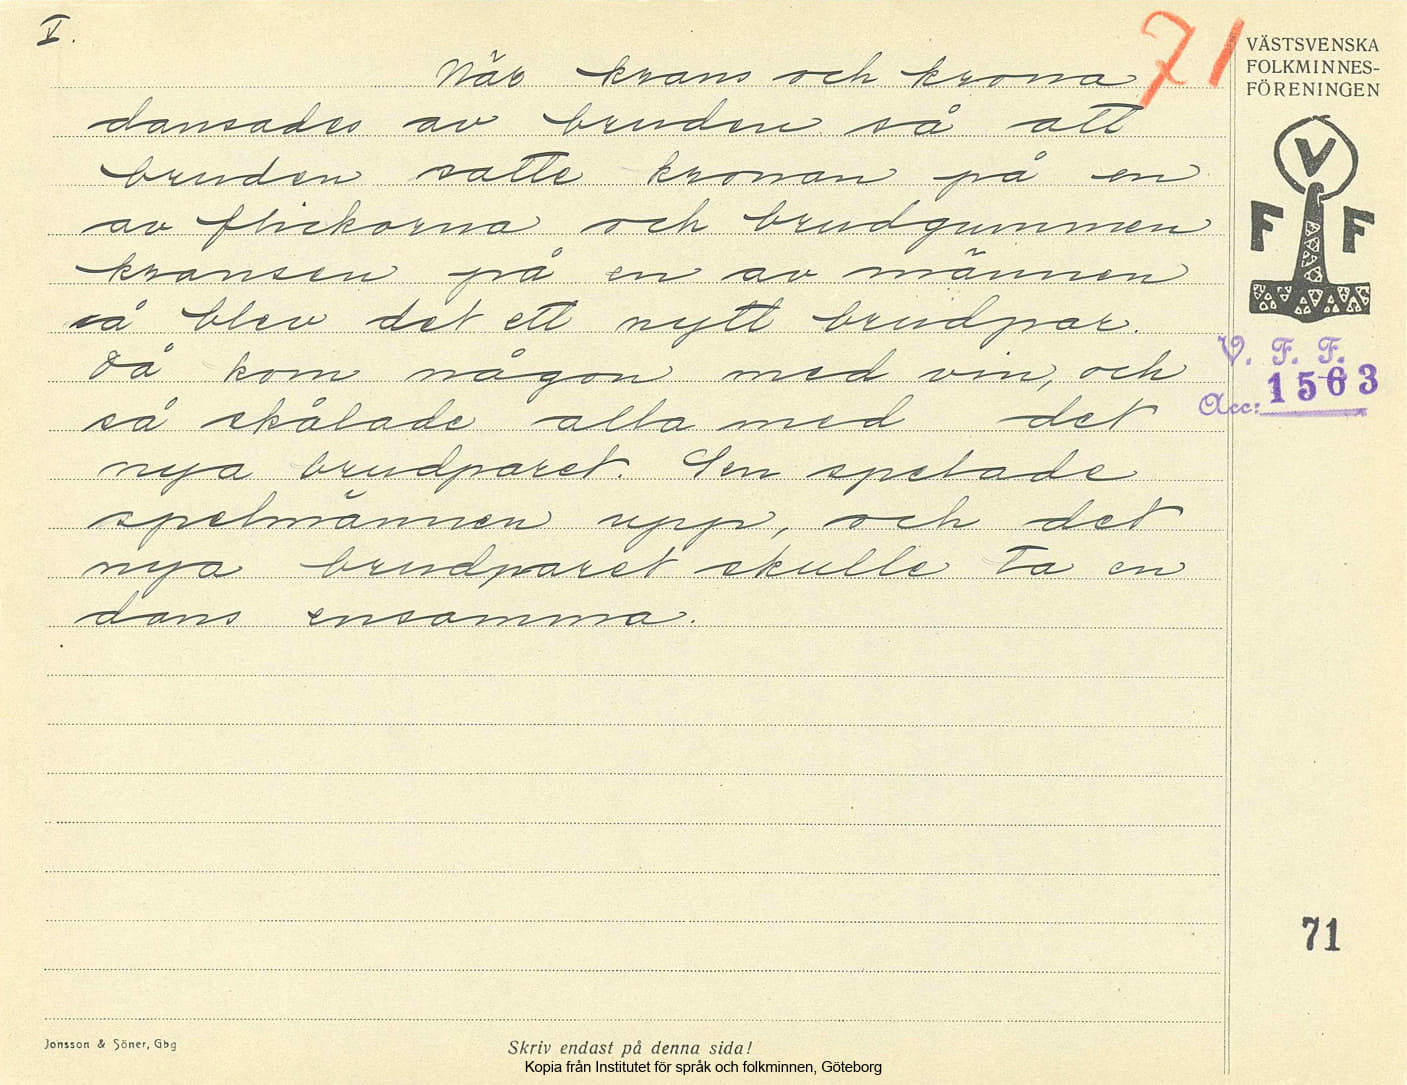 V.
71
När krans och krona
dansades av bruden så att
bruden satte kronan på en
av flickorna och brudgummen
kransen på en av männen
så blev det ett nytt brudpar.
Då kom någon med vin, och
så skålade alla med det
nya brudparet. Sen spelade
spelmännen upp, och det
nya brudparet skulle ta en
dans ensamma.
VÄSTSVENSKA
FOLKMINNES-
FÖRENINGEN
V
F F
V. F. F.
Acc: 1563
71
Jonsson & Söner, Gbg
Skriv endast på denna sida!
Kopia från Institutet för språk och folkminnen, Göteborg